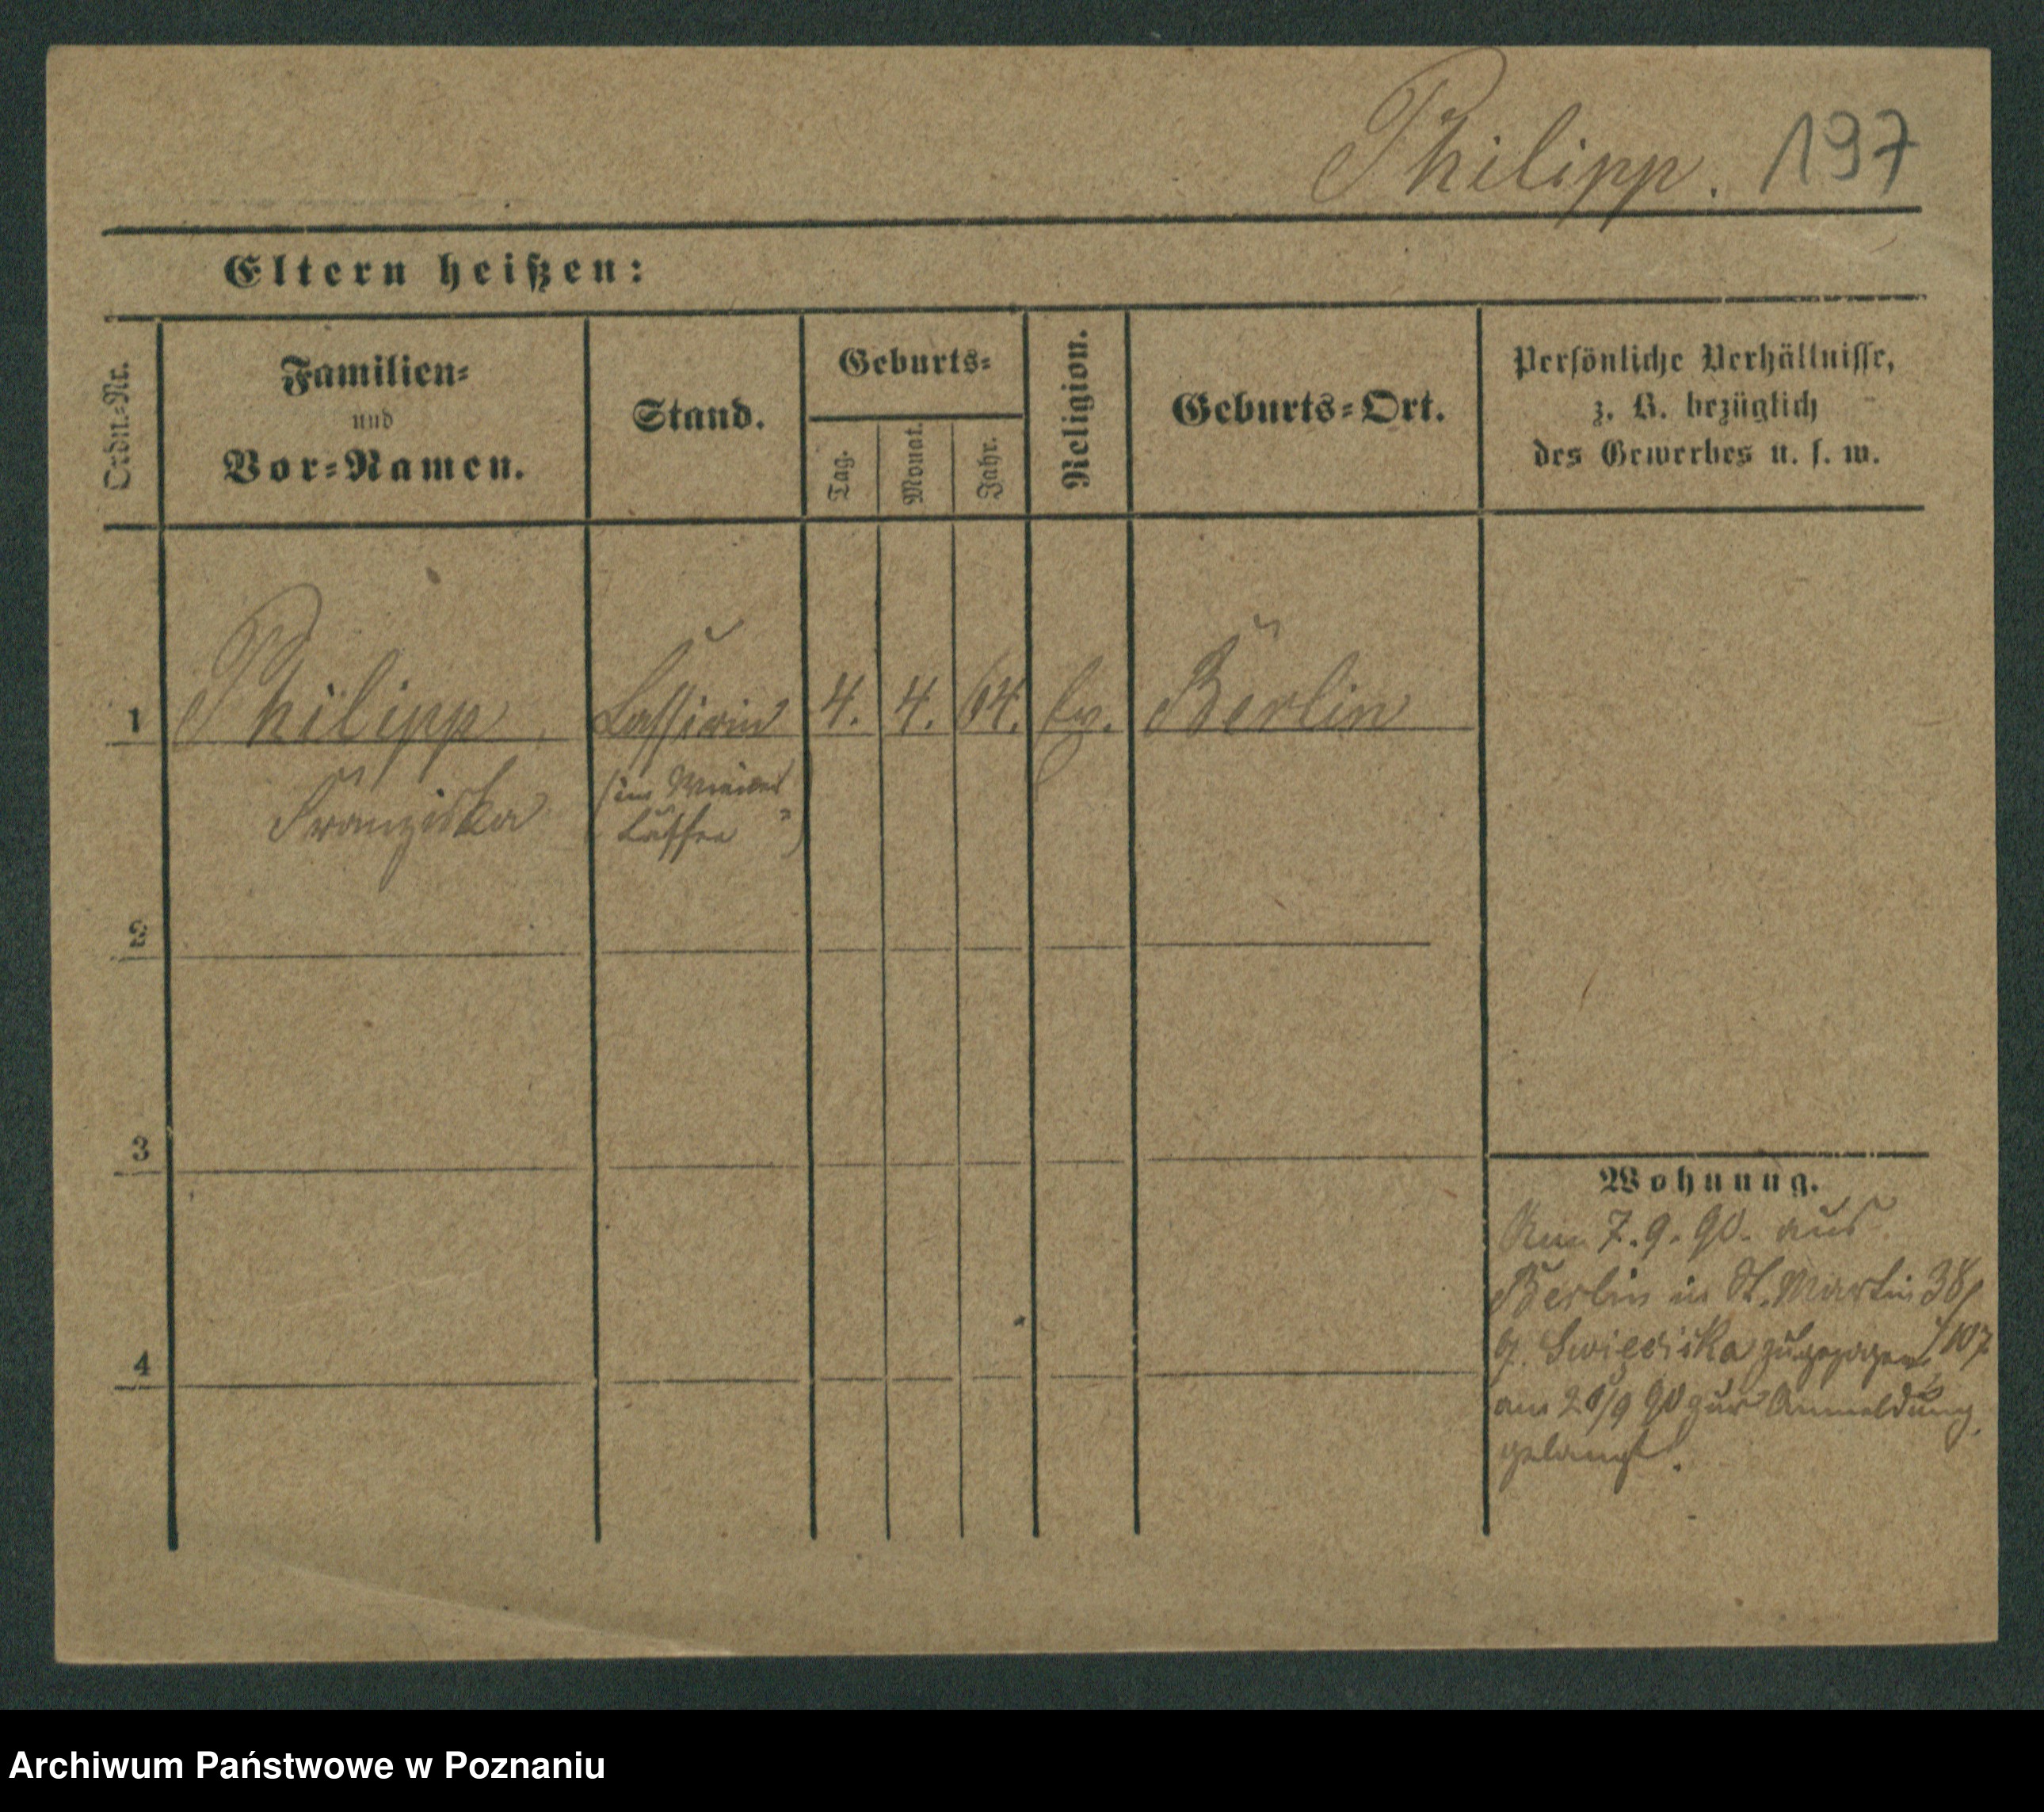 Philipp. 197
Eltern heißen:
Ordn.-Nr.
Familien-
und
Vor-Namen.
Stand.
Geburts-
Tag.
Monat.
Jahr.
Religion.
Geburts-Ort.
Persönliche Verhältnisse,
z. B. bezüglich
des Gewerbes u. s. w.
1 Philipp, 4. 4. 64. Ev. Berlin
Franziska
(im Wiener
)
2
3
4
Wohnung.
Am 7. 9. 90. aus
Berlin in St. Martin 38/
zugezogen /107
am /9 90 zur Anmeldung
gelangt.
Archiwum Państwowe w Poznaniu